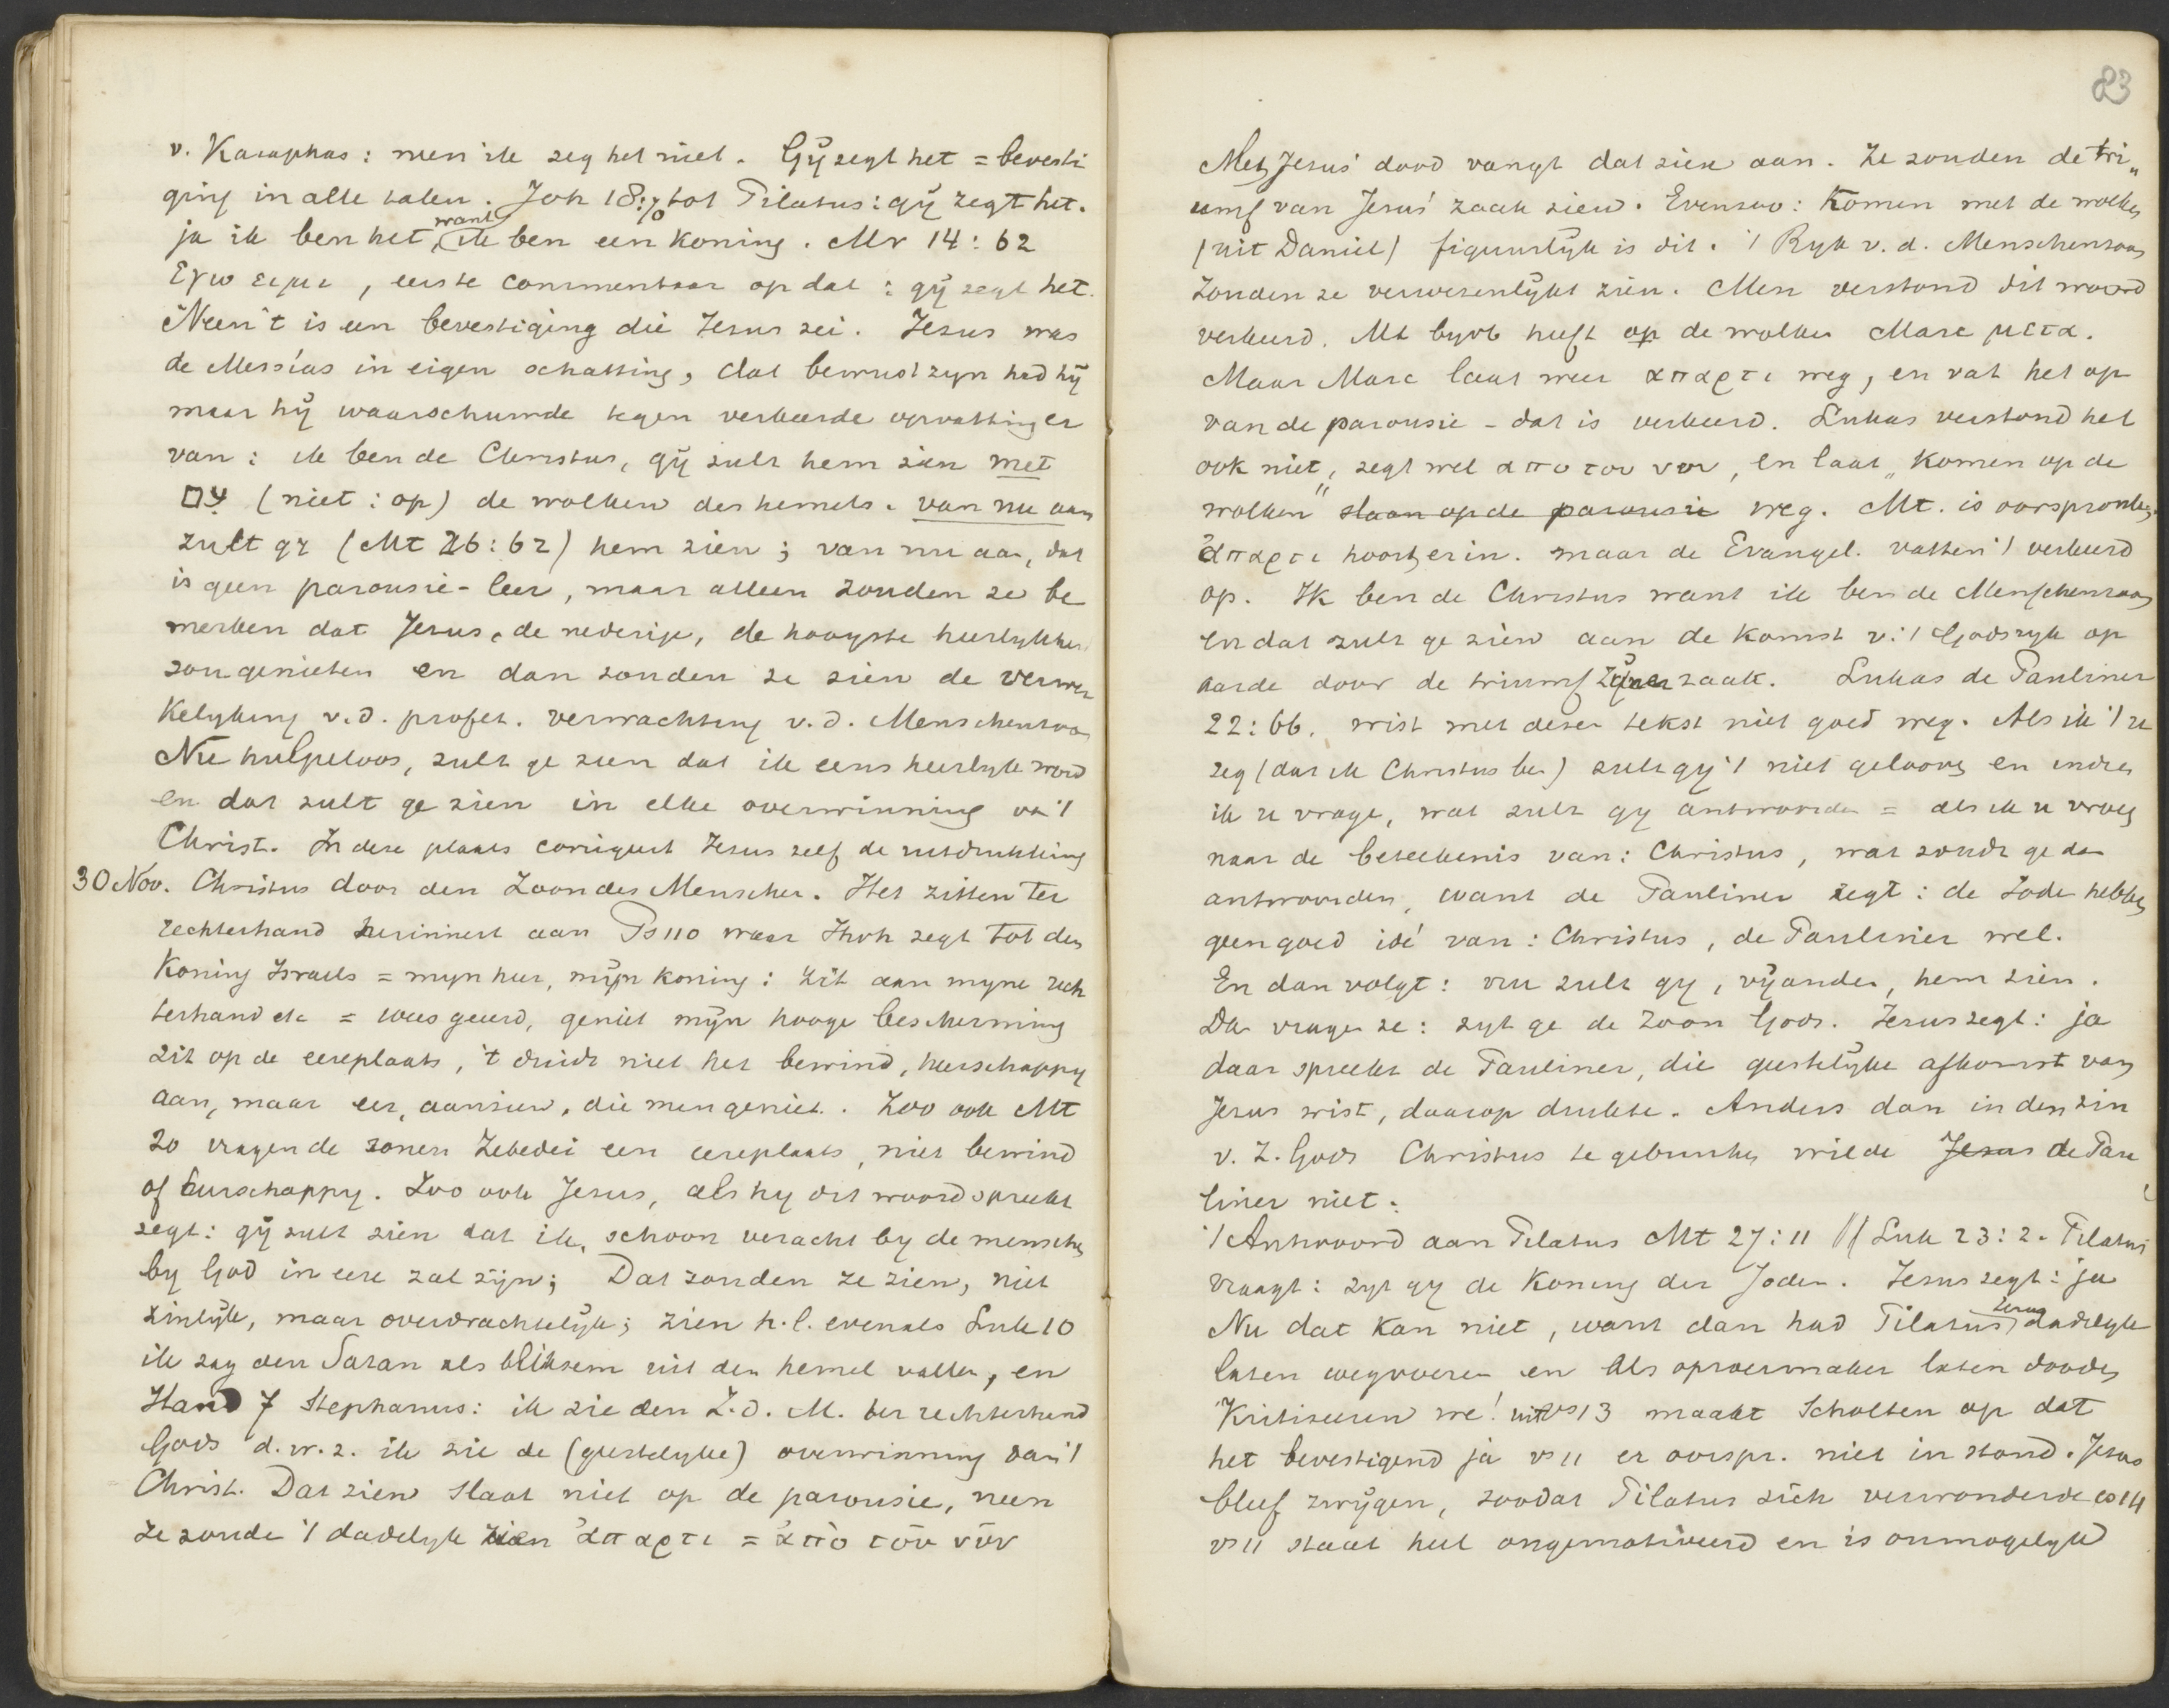 v. Kajaphas: men ik zeg het niet. Gÿ zegt het = bevesti
ging in alle talen. Joh 18: tot Pilatus: gÿ zegt het.
ja ik ben het, want ik ben een koning. Mr 14:62
Εγω ειμι, eerste commentaar op dat: gÿ zegt het.
Neen 't is een bevestiging die Jezus zei. Jezus was
de Messías in eigen schatting, dat bewustzyn had hÿ
maar hÿ waarschuwde tegen verkeerde opvatting er
van: ik ben de Christus, gÿ zult hem zien met
עם (niet: op) de wolken des hemels. van nu aan
zult gy (Mt 26:62) hem zien; van nu aan, dat
is geen parousie-leer, maar alleen zouden ze be
merken dat Jezus, de nederige, de hoogste heerlykheid
zou genieten en dan zouden ze zien de verwer
kelyking v.d. profet. verwachting v.d. Menschenzoon
Nu hulpeloos, zult ge zien dat ik eens heerlyk word
en dat zult ge zien in elke overwinning va 't
Christ. In deze plaats corrigeert Jezus zelf de uitdrukking
30 Nov. Christus door den Zoon des Menschen. Het zitten ter
rechterhand herinnert aan Ps 110 waar Jhvh zegt tot den
Koning Israels = myn heer, mÿn koning: zit aan myne rech
terhand etc = wees geëerd, geniet mÿn hooge bescherming
zit op de eereplaats, 't duidt niet het bewind, heerschappy
aan, maar eer, aanzien, die men geniet. Zoo ook Mt
20 vragen de zonen Zebedei een eereplaats, niet bewind
of heerschappy. Zoo ook Jezus, als hy dit woord spreekt
zegt: gÿ zult zien dat ik, schoon veracht by de menschen
by God in eere zal zÿn; Dat zouden ze zien, niet
zinlÿk, maar overdrachtelÿk; zien h.l. evenals Luk 10
ik zag den Satan als bliksem uit den hemel vallen, en
Hand 7 Stephanus: ik zie den Z.d.M. ter rechterhand
Gods d.w.z. ik zie de (geestelyke) overwinning van 't
Christ. Dat zien slaat niet op de parousie, neen
ze zouden 't dadelyk zien ἀπαρτι = ἀπὸ τοῦ νῦν
83
Met Jezus' dood vangt dat zien aan. Ze zouden de tri„
umf van Jezus' zaak zien. Evenzoo: Komen met de wolken
(uit Daniel) figuurlÿk is dit. 't Ryk v.d. Menschenzoon
Zouden ze verwezenlÿkt zien. Men verstond dit woord
verkeerd. Mt byvb heeft op de wolken Marc μετα.
Maar Marc laat weer απαρτι weg, en vat het op
van de parousie - dat is verkeerd. Lukas verstond het
ook niet, zegt wel απο του νυν, en laat „Komen op de
wolken" slaan op de parousie weg. Mt. is oorspronkel.
ἀπαρτι hoort er in. maar de Evangel. vatten 't verkeerd
op. Ik ben de Christus want ik ben de Menschenzoon
En dat zult ge zien aan de komst v. 't Godsryk op
aarde door de triumf zÿner zaak. Lukas de Pauliner
22:66. wist met dezen tekst niet goed weg. Als ik 't u
zeg (dat ik Christus ben) zult gÿ 't niet gelooven en indien
ik u vrage, wat zult gy antwoorden = als ik u vroeg
naar de beteekenis van: Christus, wat zoudt ge dan
antwoorden, want de Pauliner zegt: de Joden hebben
geen goed idé van: Christus, de Pauliner wel.
En dan volgt: nu zult gy, vÿanden, hem zien.
Dan vragen ze: zyt ge de Zoon Gods. Jezus zegt: ja
daar spreekt de Pauliner, die geestelÿke afkomst van
Jezus wist, daarop drukte. Anders dan in den zin
v. Z. Gods Christus te gebruiken wilde Jezus de Pau
liner niet.
't Antwoord aan Pilatus Mt 27:11 // Luk 23:2. Pilatus
vraagt: zyt gy de Koning der Joden. Jezus zegt: ja
Nu dat kan niet, want dan had Pilatus Jezus dadelyk
laten wegvoeren en als oproermaker laten dooden
Kritiseeren we! uit vs 13 maakt Scholten op dat
het bevestigend ja vs 11 er oorspr. niet in stond. Jezus
bleef zwÿgen, zoodat Pilatus zich verwonderde vs 14
vs 11 staat heel ongemotiveerd en is onmogelyk